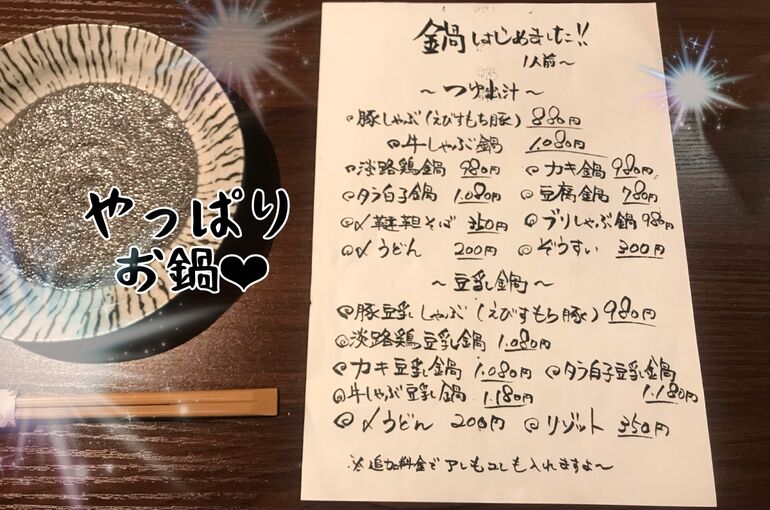 やっぱり
お鍋❤
鍋はじめました!!
1人前〜
〜つゆ出汁〜
◎豚しゃぶ(えびすもち豚) 880円
◎牛しゃぶ鍋 1.080円
◎淡路鶏鍋 980円 ◎カキ鍋 980円
◎タラ白子鍋 1.080円 ◎豆腐鍋 780円
◎〆韃靼そば 350円 ◎ブリしゃぶ鍋 980円
◎〆うどん 200円 ◎ぞうすい 300円
〜豆乳鍋〜
◎豚豆乳しゃぶ(えびすもち豚) 980円
◎淡路鶏豆乳鍋 1.080円
◎カキ豆乳鍋 1.080円 ◎タラ白子豆乳鍋
◎牛しゃぶ豆乳鍋 1.180円 1.180円
◎〆うどん 200円 ◎リゾット 350円
※追加料金でアレもコレも入れますよ〜